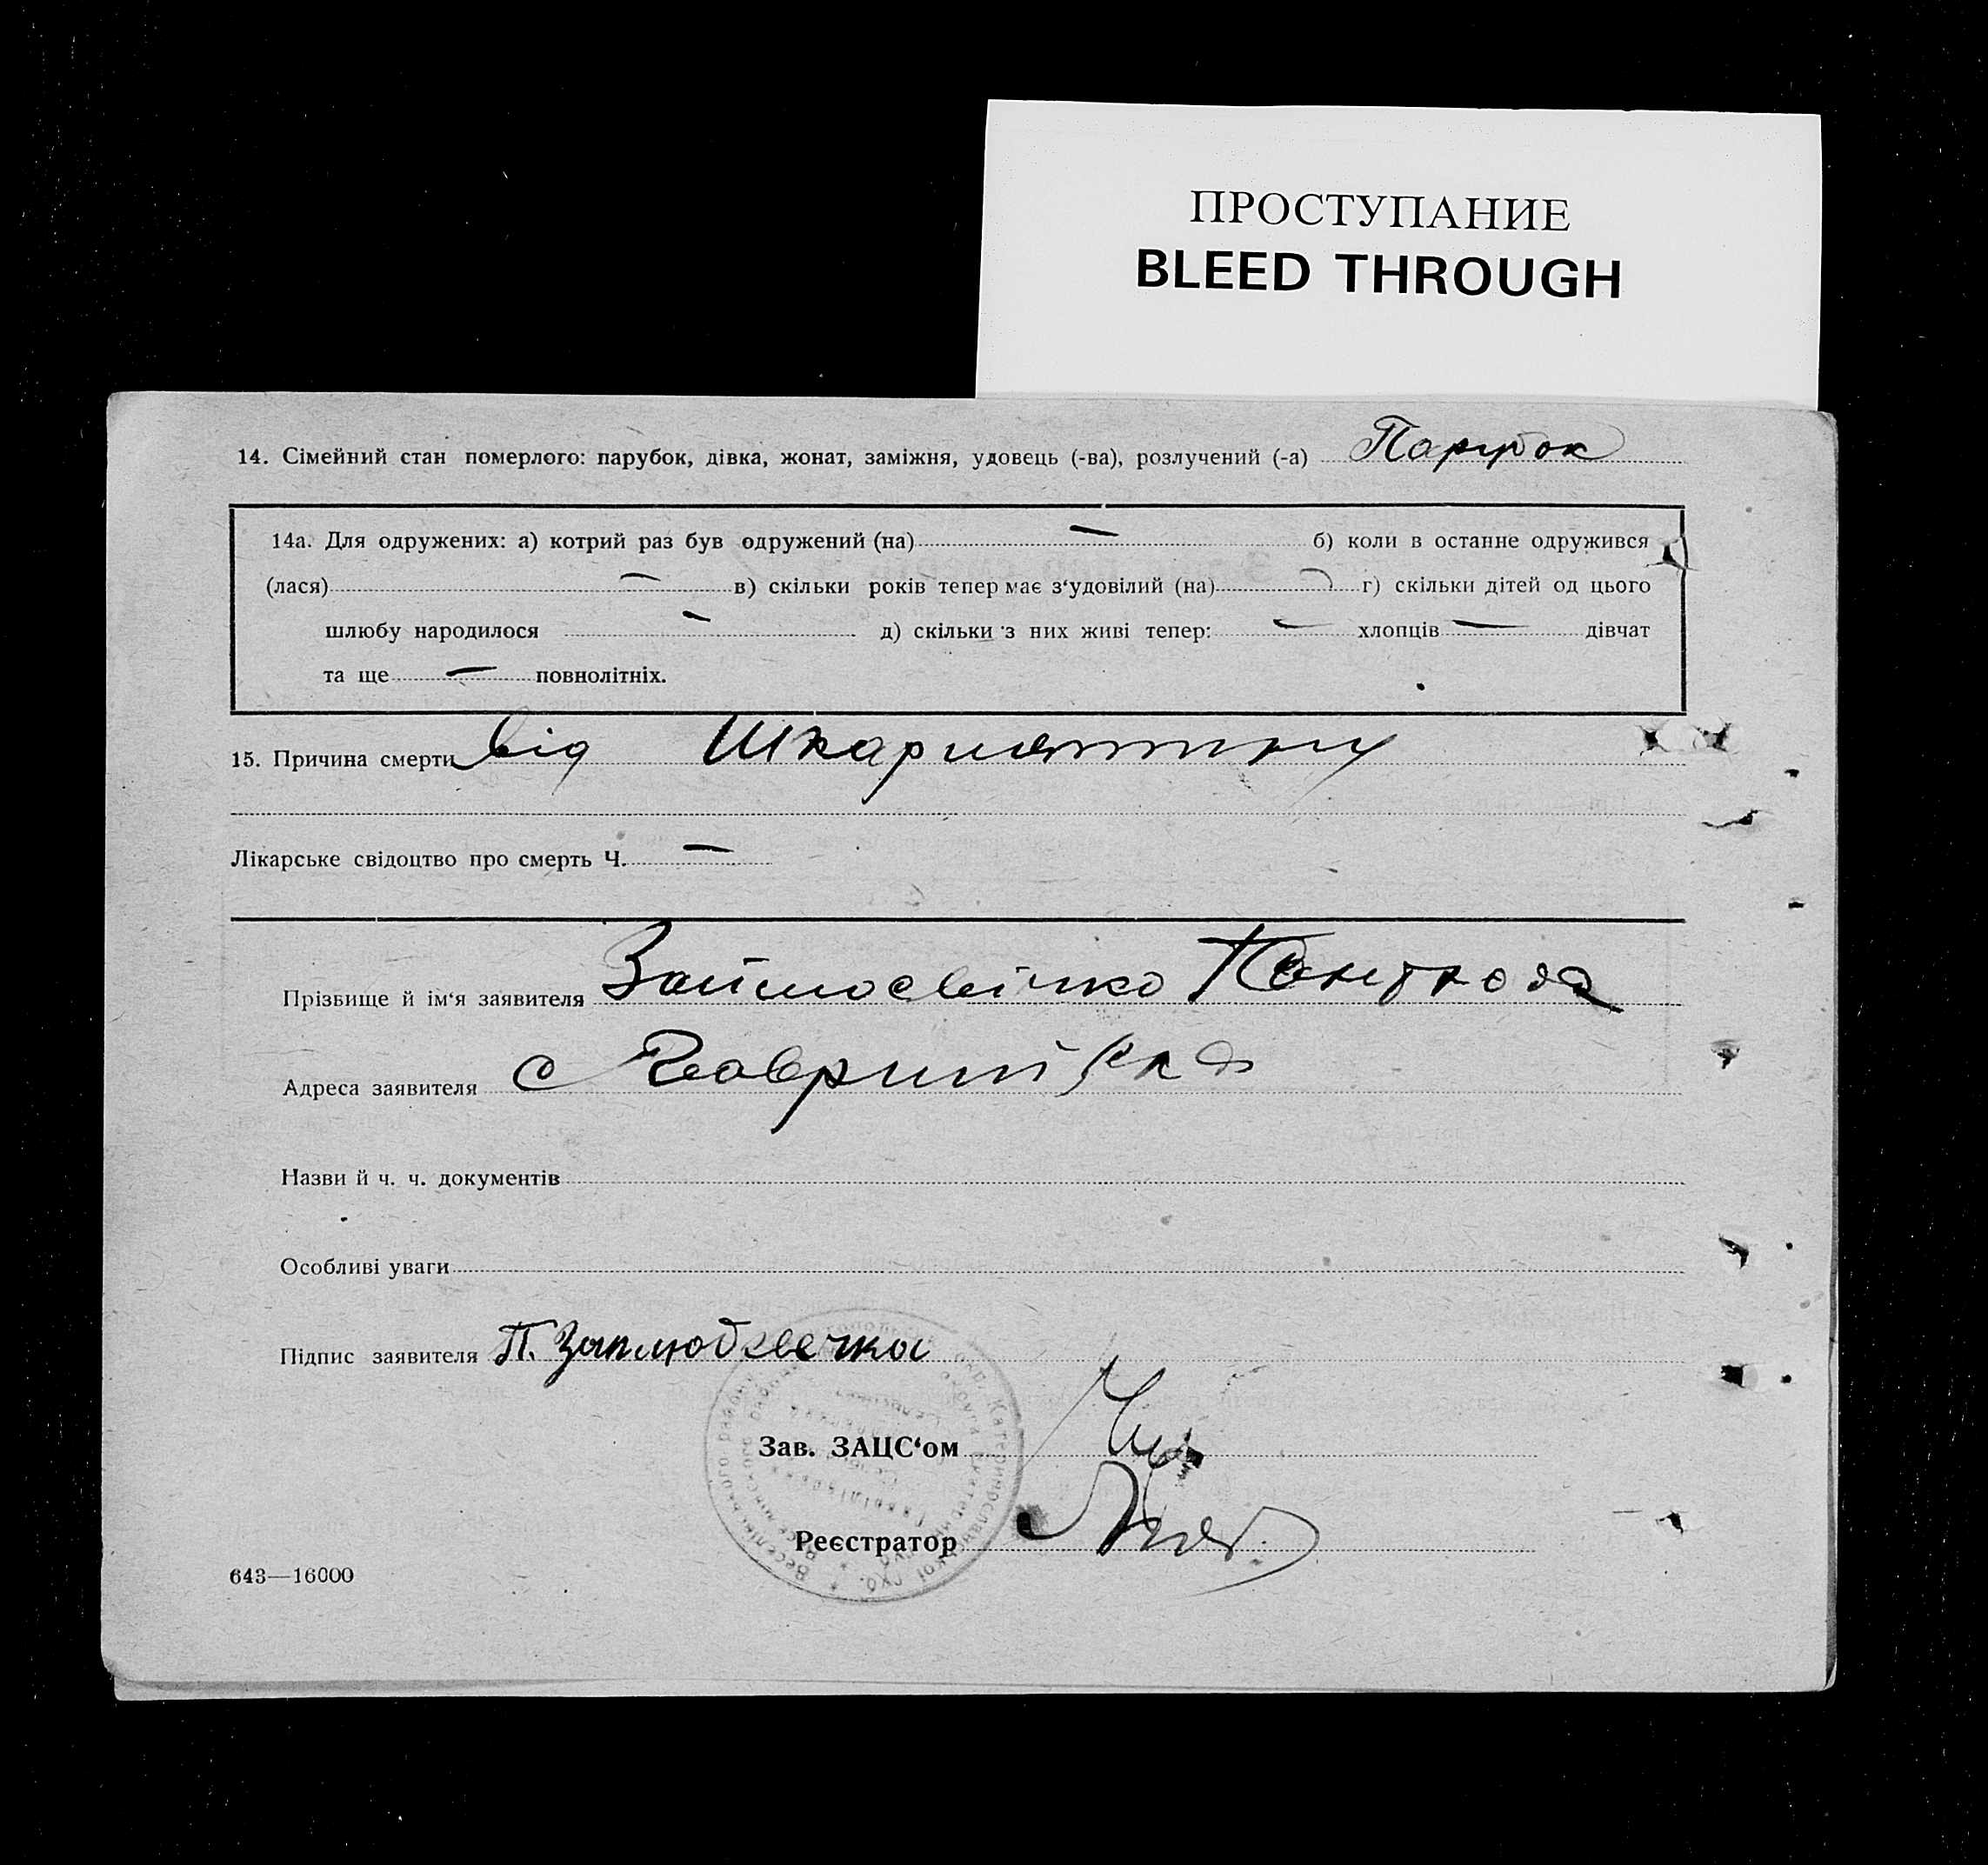 ПРОСТУПАНИЕ
BLEED THROUGH
14. Сімейний стан померлого: парубок, дівка, жонат, заміжня, удовець (-ва), розлучений (-а) Парубок
14а. Для одружених: а) котрий раз був одружений (на) — б) коли в останне одружився
(лася) — в) скільки років тепер має з‘удовілий (на) — г) скільки дітей од цього
шлюбу народилося — д) скільки з них живі тепер: — хлопців — дівчат
та ще — повнолітніх.
15. Причина смерти від Шкарлятини
Лікарське свідоцтво про смерть Ч. —
Прізвище й ім‘я заявителя
Адреса заявителя с
Назви й ч. ч. документів
Особливі уваги
Підпис заявителя П.
Зав. ЗАЦС‘ом
Реєстратор
643—16000